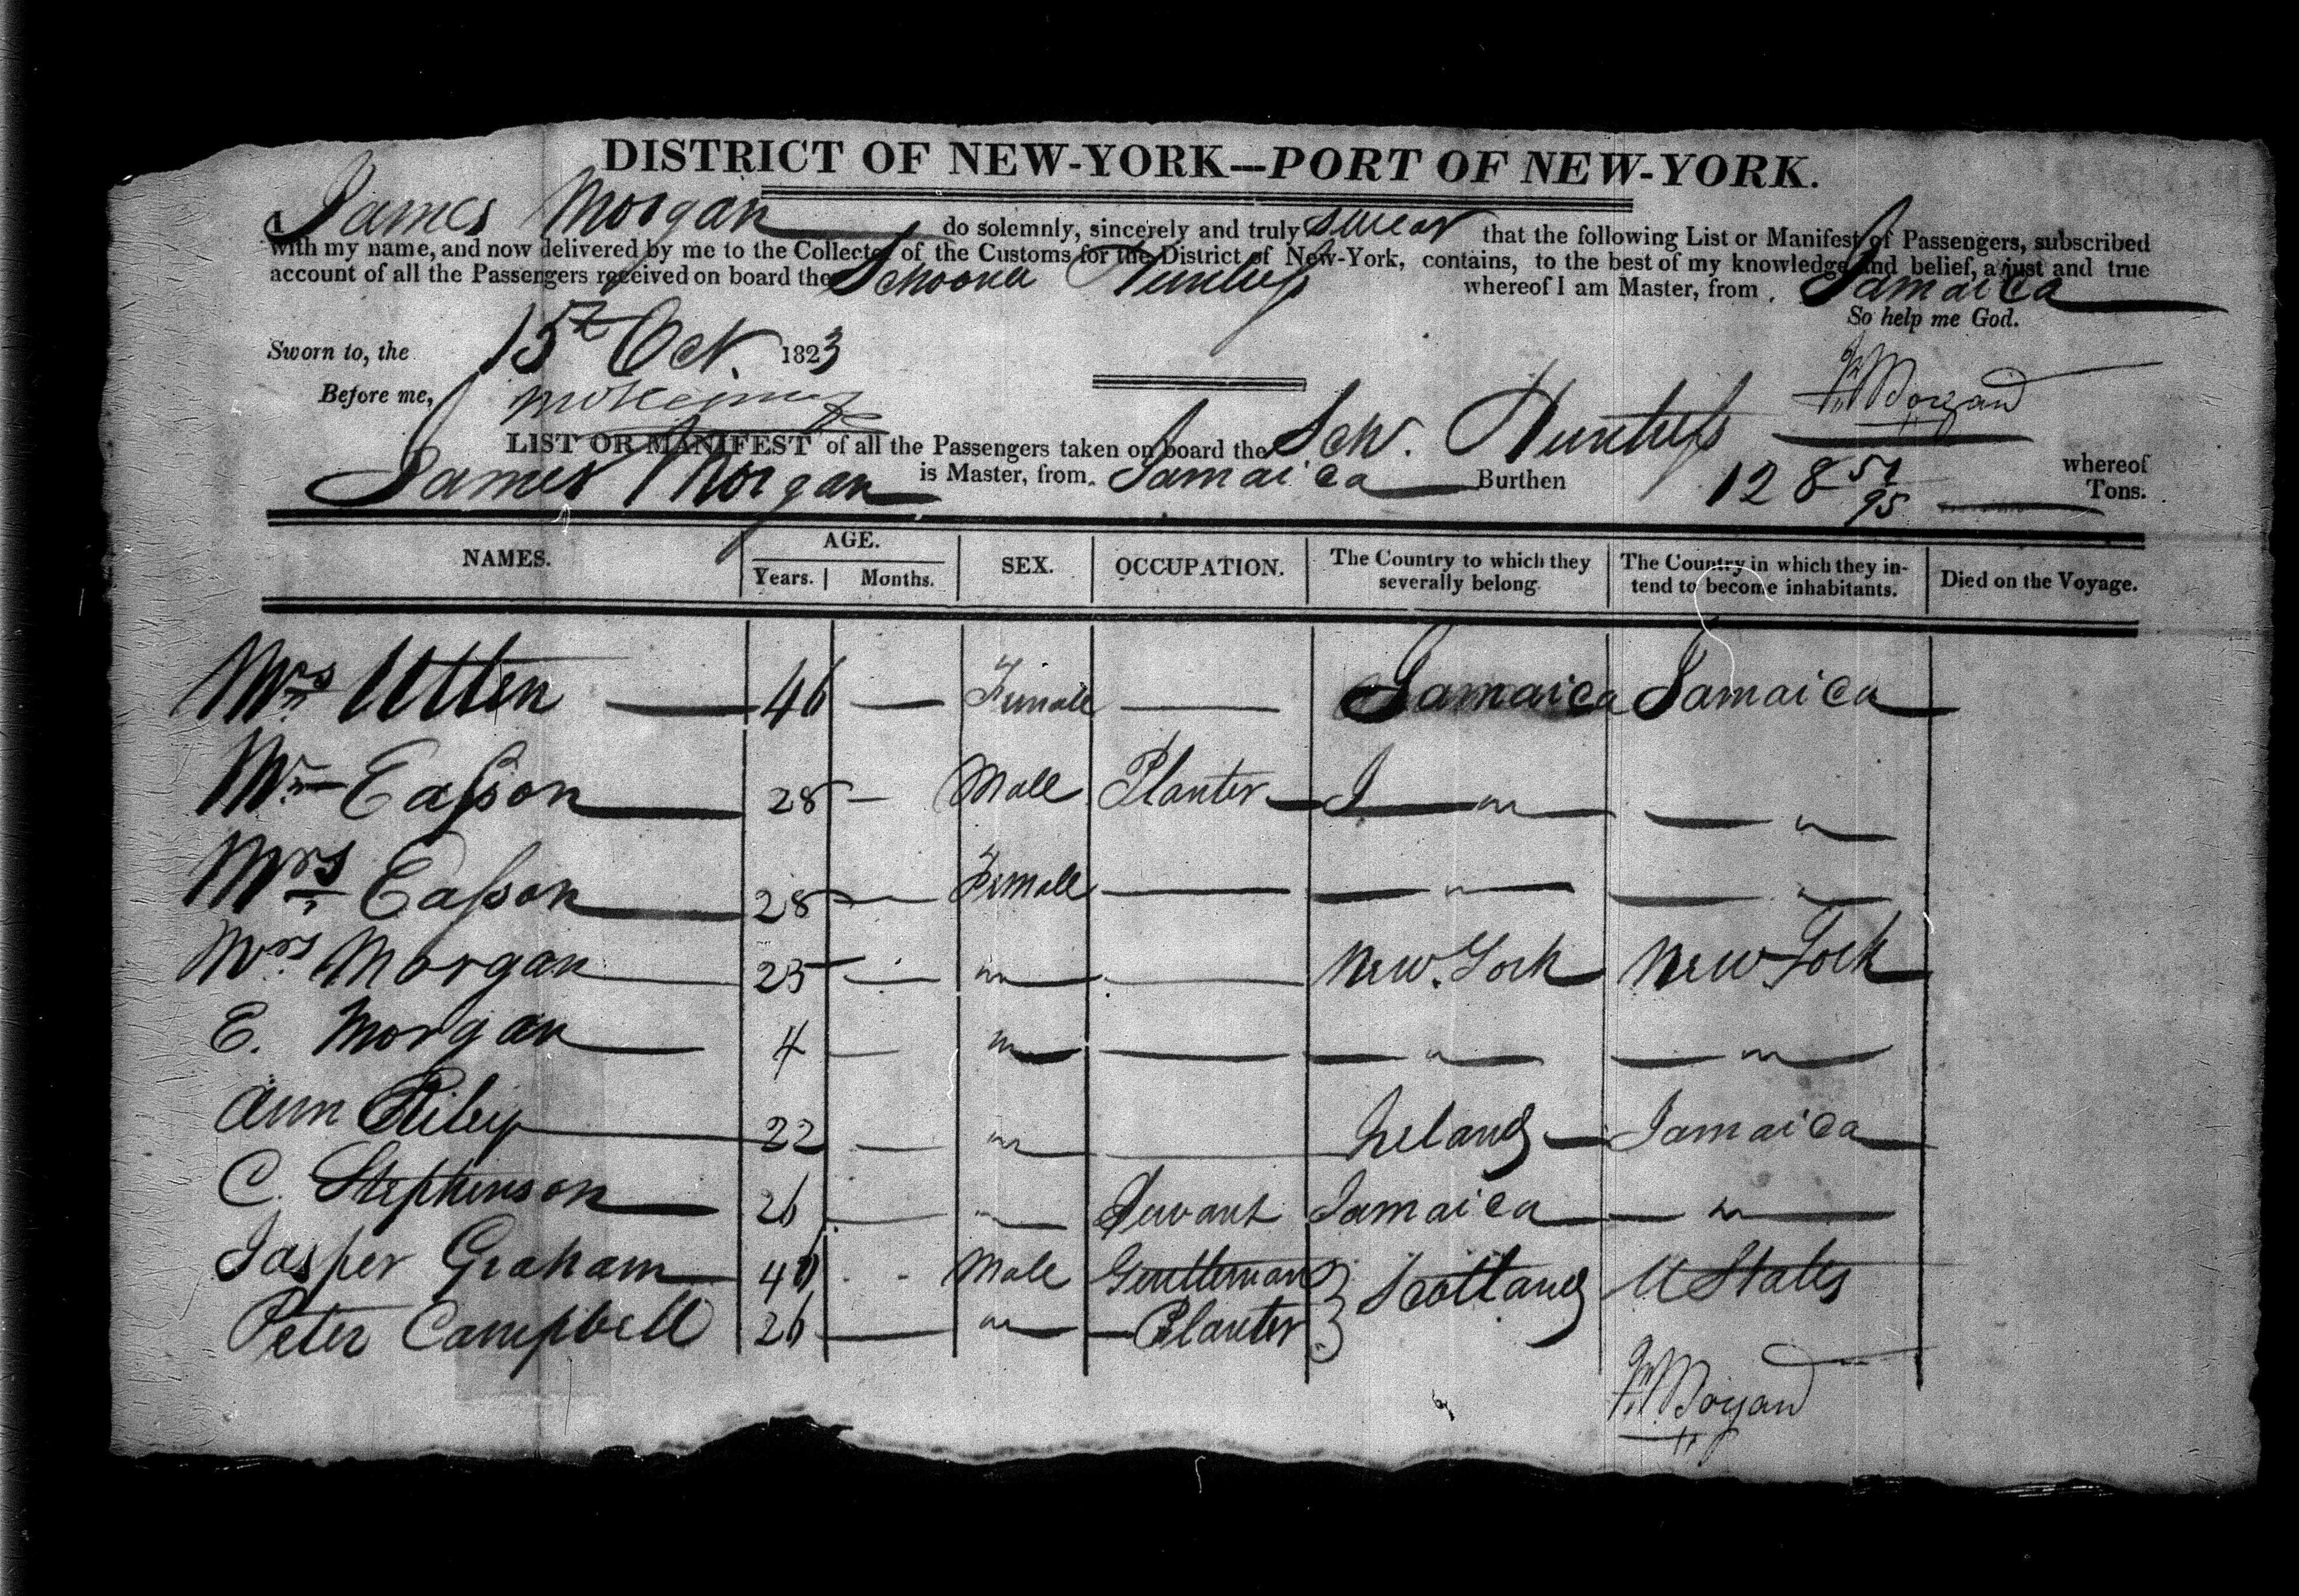 DISTRICT OF NEW-YORK---PORT OF NEW-YORK.
I James Morgan do solemnly, sincerely and truly swear that the following List or Manifest of Passengers, subscribed
with my name, and now delivered by me to the Collector of the Customs for the District of New-York, contains, to the best of my knowledge and belief, a just and true
account of all the Passengers received on board the Schooner Huntress whereof I am Master, from Jamaica
So help me God.
Sworn to, the 15th Oct. 1823
Before me,
Jn Morgan
LIST OR MANIFEST of all the Passengers taken on board the Schr. Huntress whereof
James Morgan is Master, from Jamaica Burthen 128 51/95 Tons.
NAMES. AGE. Years. Months. SEX. OCCUPATION. The Country to which they severally belong. The Country in which they intend to become inhabitants. Died on the Voyage.
Mrs Utten — 46 — Female — Jamaica Jamaica
Mr Easson — 28 — Male Planter — J — " — — "
Mrs Easson — 28 — Female — — " — — "
Mrs Morgan — 25 — " — New York New York
E. Morgan — 4 — " — — " — — " —
Ann Riley — 22 — " — Ireland — Jamaica
C. Stephenson — 26 — " Servant Jamaica — " —
Jasper Graham — 40 - - Male Gentleman } Scotland U States
Peter Campbell 26 — " — Planter }
Jn Morgan